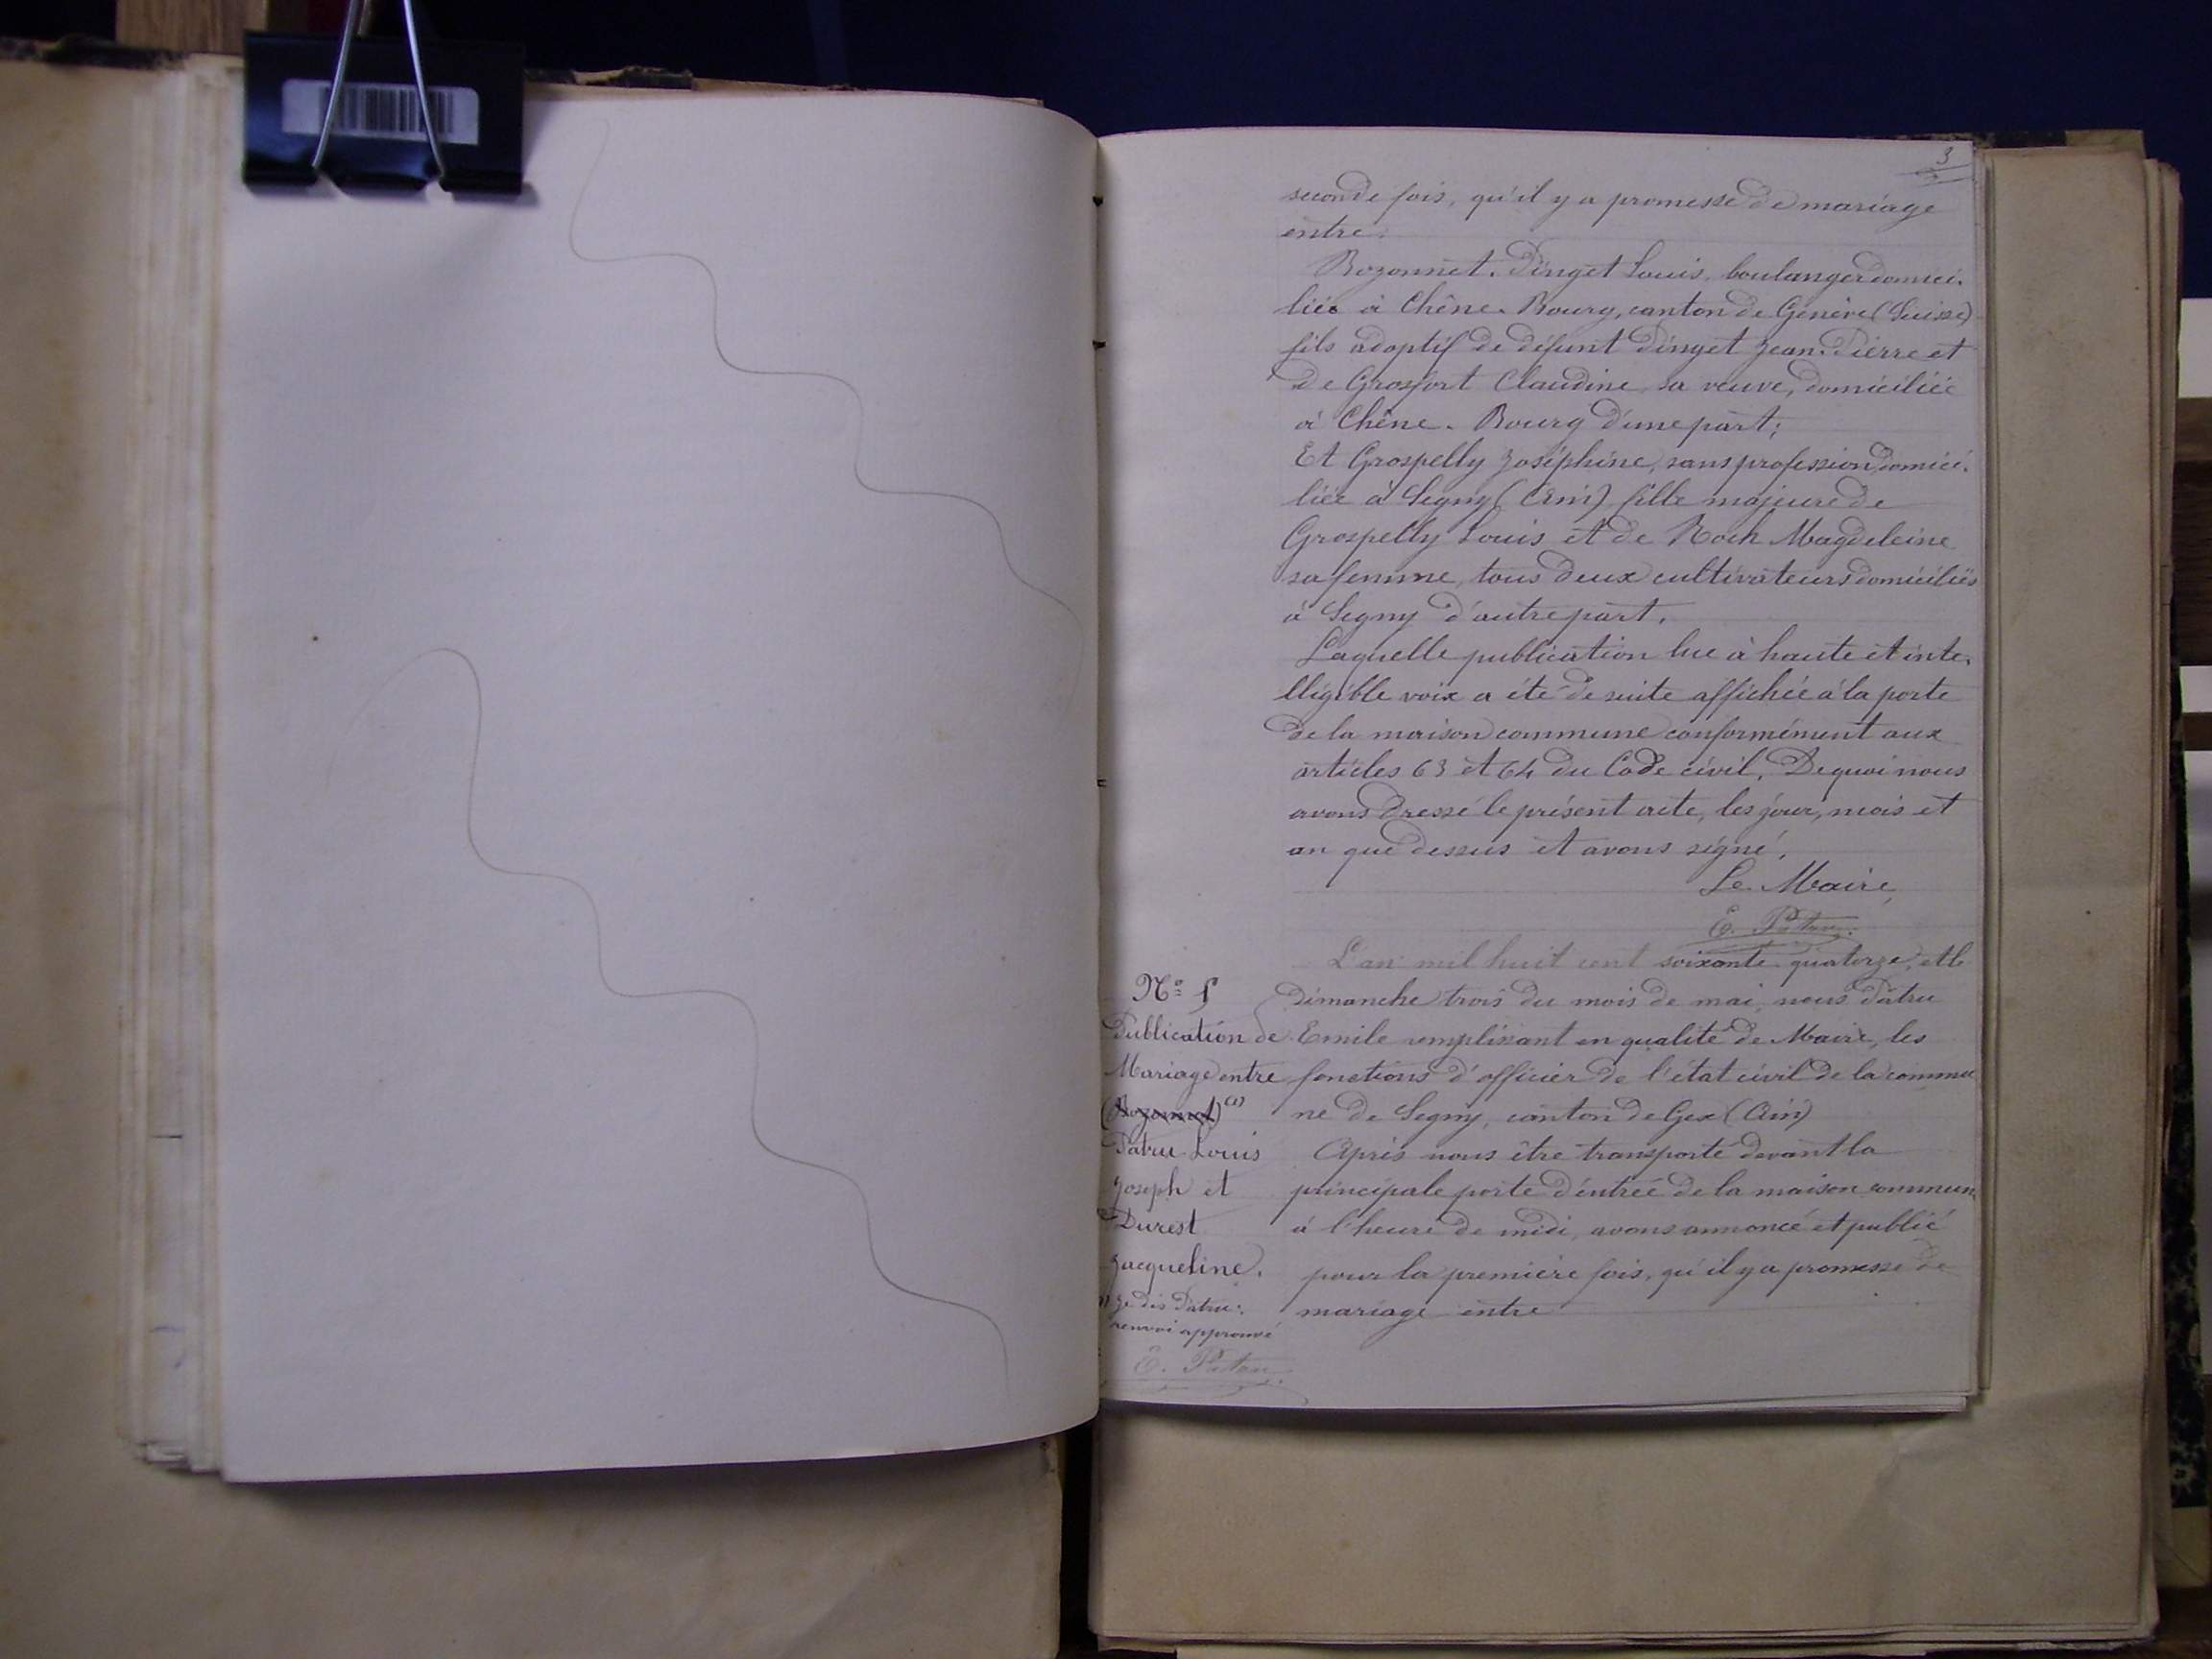 3
seconde fois, qu'il y a promesse de mariage
entre:
Bozonnet-Dinget Louis, boulanger domici-
lié à Chêne-Bourg, canton de Genève (Suisse)
fils adoptif de défunt Dinget Jean-Pierre et
de Grosfort Claudine, sa veuve, domiciliée
à Chêne-Bourg d'une part;
Et Grospelly Joséphine, sans profession, domici-
liée à Segny (Ain) fille majeure de
Grospelly Louis et de Roch Magdeleine
sa femme, tous deux cultivateurs domiciliés
à Segny d'autre part.
Laquelle publication lue à haute et inte-
lligible voix a été de suite affichée à la porte
de la maison commune conformément aux
articles 63 et 64 du Code civil. De quoi nous
avons dressé le présent acte, les jour, mois et
an que dessus et avons signé.
Le Maire,
E. Patru.
N° 5
Publication de
Mariage entre
(Bozonnet) (1)
Patru Louis
Joseph et
Durest
Jacqueline.
(1) Je dis Patru:
renvoi approuvé
E. Patru
L'an mil huit cent soixante quatorze, et le
Dimanche trois du mois de mai, nous Patru
Emile remplissant en qualité de Maire, les
fonctions d'officier de l'état civil de la commu
ne de Segny, canton de Gex (Ain)
Après nous être transporté devant la
principale porte d'entrée de la maison commune
à l'heure de midi, avons annoncé et publié
pour la première fois, qu'il y a promesse de
mariage entre